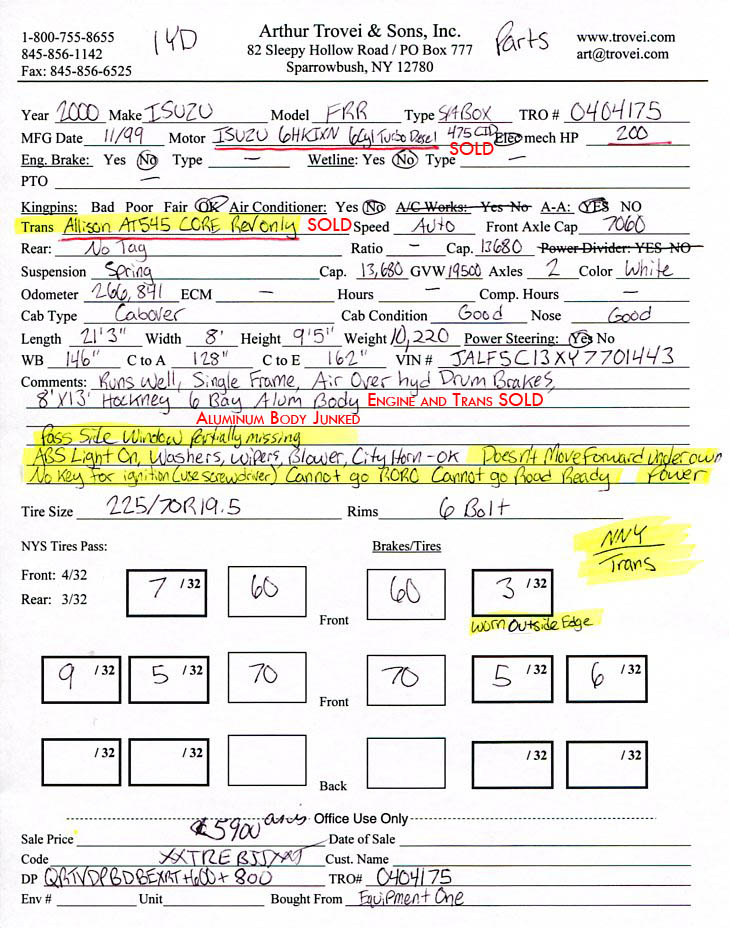 1-800-755-8655
845-856-1142
Fax: 845-856-6525
14D
Arthur Trovei & Sons, Inc.
82 Sleepy Hollow Road / PO Box 777
Sparrowbush, NY 12780
Parts
www.trovei.com
art@trovei.com
Year 2000 Make ISUZU Model FRR Type S/A BOX TRO # 0404175
MFG Date 11/99 Motor ISUZU 6HK1XN 6Cyl Turbo Diesel 475 CID Elec mech HP 200
SOLD
Eng. Brake: Yes No Type — Wetline: Yes No Type —
PTO —
Kingpins: Bad Poor Fair OK Air Conditioner: Yes No A/C Works: Yes No A-A: YES NO
Trans Allison AT545 CORE Rev only SOLD Speed Auto Front Axle Cap 7060
Rear: No Tag Ratio — Cap. 13680 Power Divider: YES NO
Suspension Spring Cap. 13,680 GVW 19500 Axles 2 Color White
Odometer 266,891 ECM — Hours — Comp. Hours —
Cab Type Cabover Cab Condition Good Nose Good
Length 21'3" Width 8' Height 9'5" Weight 10,220 Power Steering: Yes No
WB 146" C to A 128" C to E 162" VIN # JALF5C13XY7701443
Comments: Runs Well, Single Frame, Air Over hyd Drum Brakes,
8'X13' Hackney 6 Bay Alum Body ENGINE AND TRANS SOLD
ALUMINUM BODY JUNKED
Pass Side Window partially missing
ABS Light On, Washers, Wipers, Blower, City Horn - OK Doesn't Move Forward under own
No Key for ignition (use screwdriver) Cannot go RORO Cannot go Road Ready power
Tire Size 225/70R19.5 Rims 6 Bolt
NNY
Trans
NYS Tires Pass: Brakes/Tires
Front: 4/32
Rear: 3/32
7 /32 60 Front 60 3 /32
Worn Outside Edge
9 /32 5 /32 70 Front 70 5 /32 6 /32
/32 /32 Back /32 /32
Office Use Only
Sale Price $5900 as is Date of Sale
Code Cust. Name
DP QRTVDPBDBEXRT+600+800 TRO# 0404175
Env # Unit Bought From Equipment One